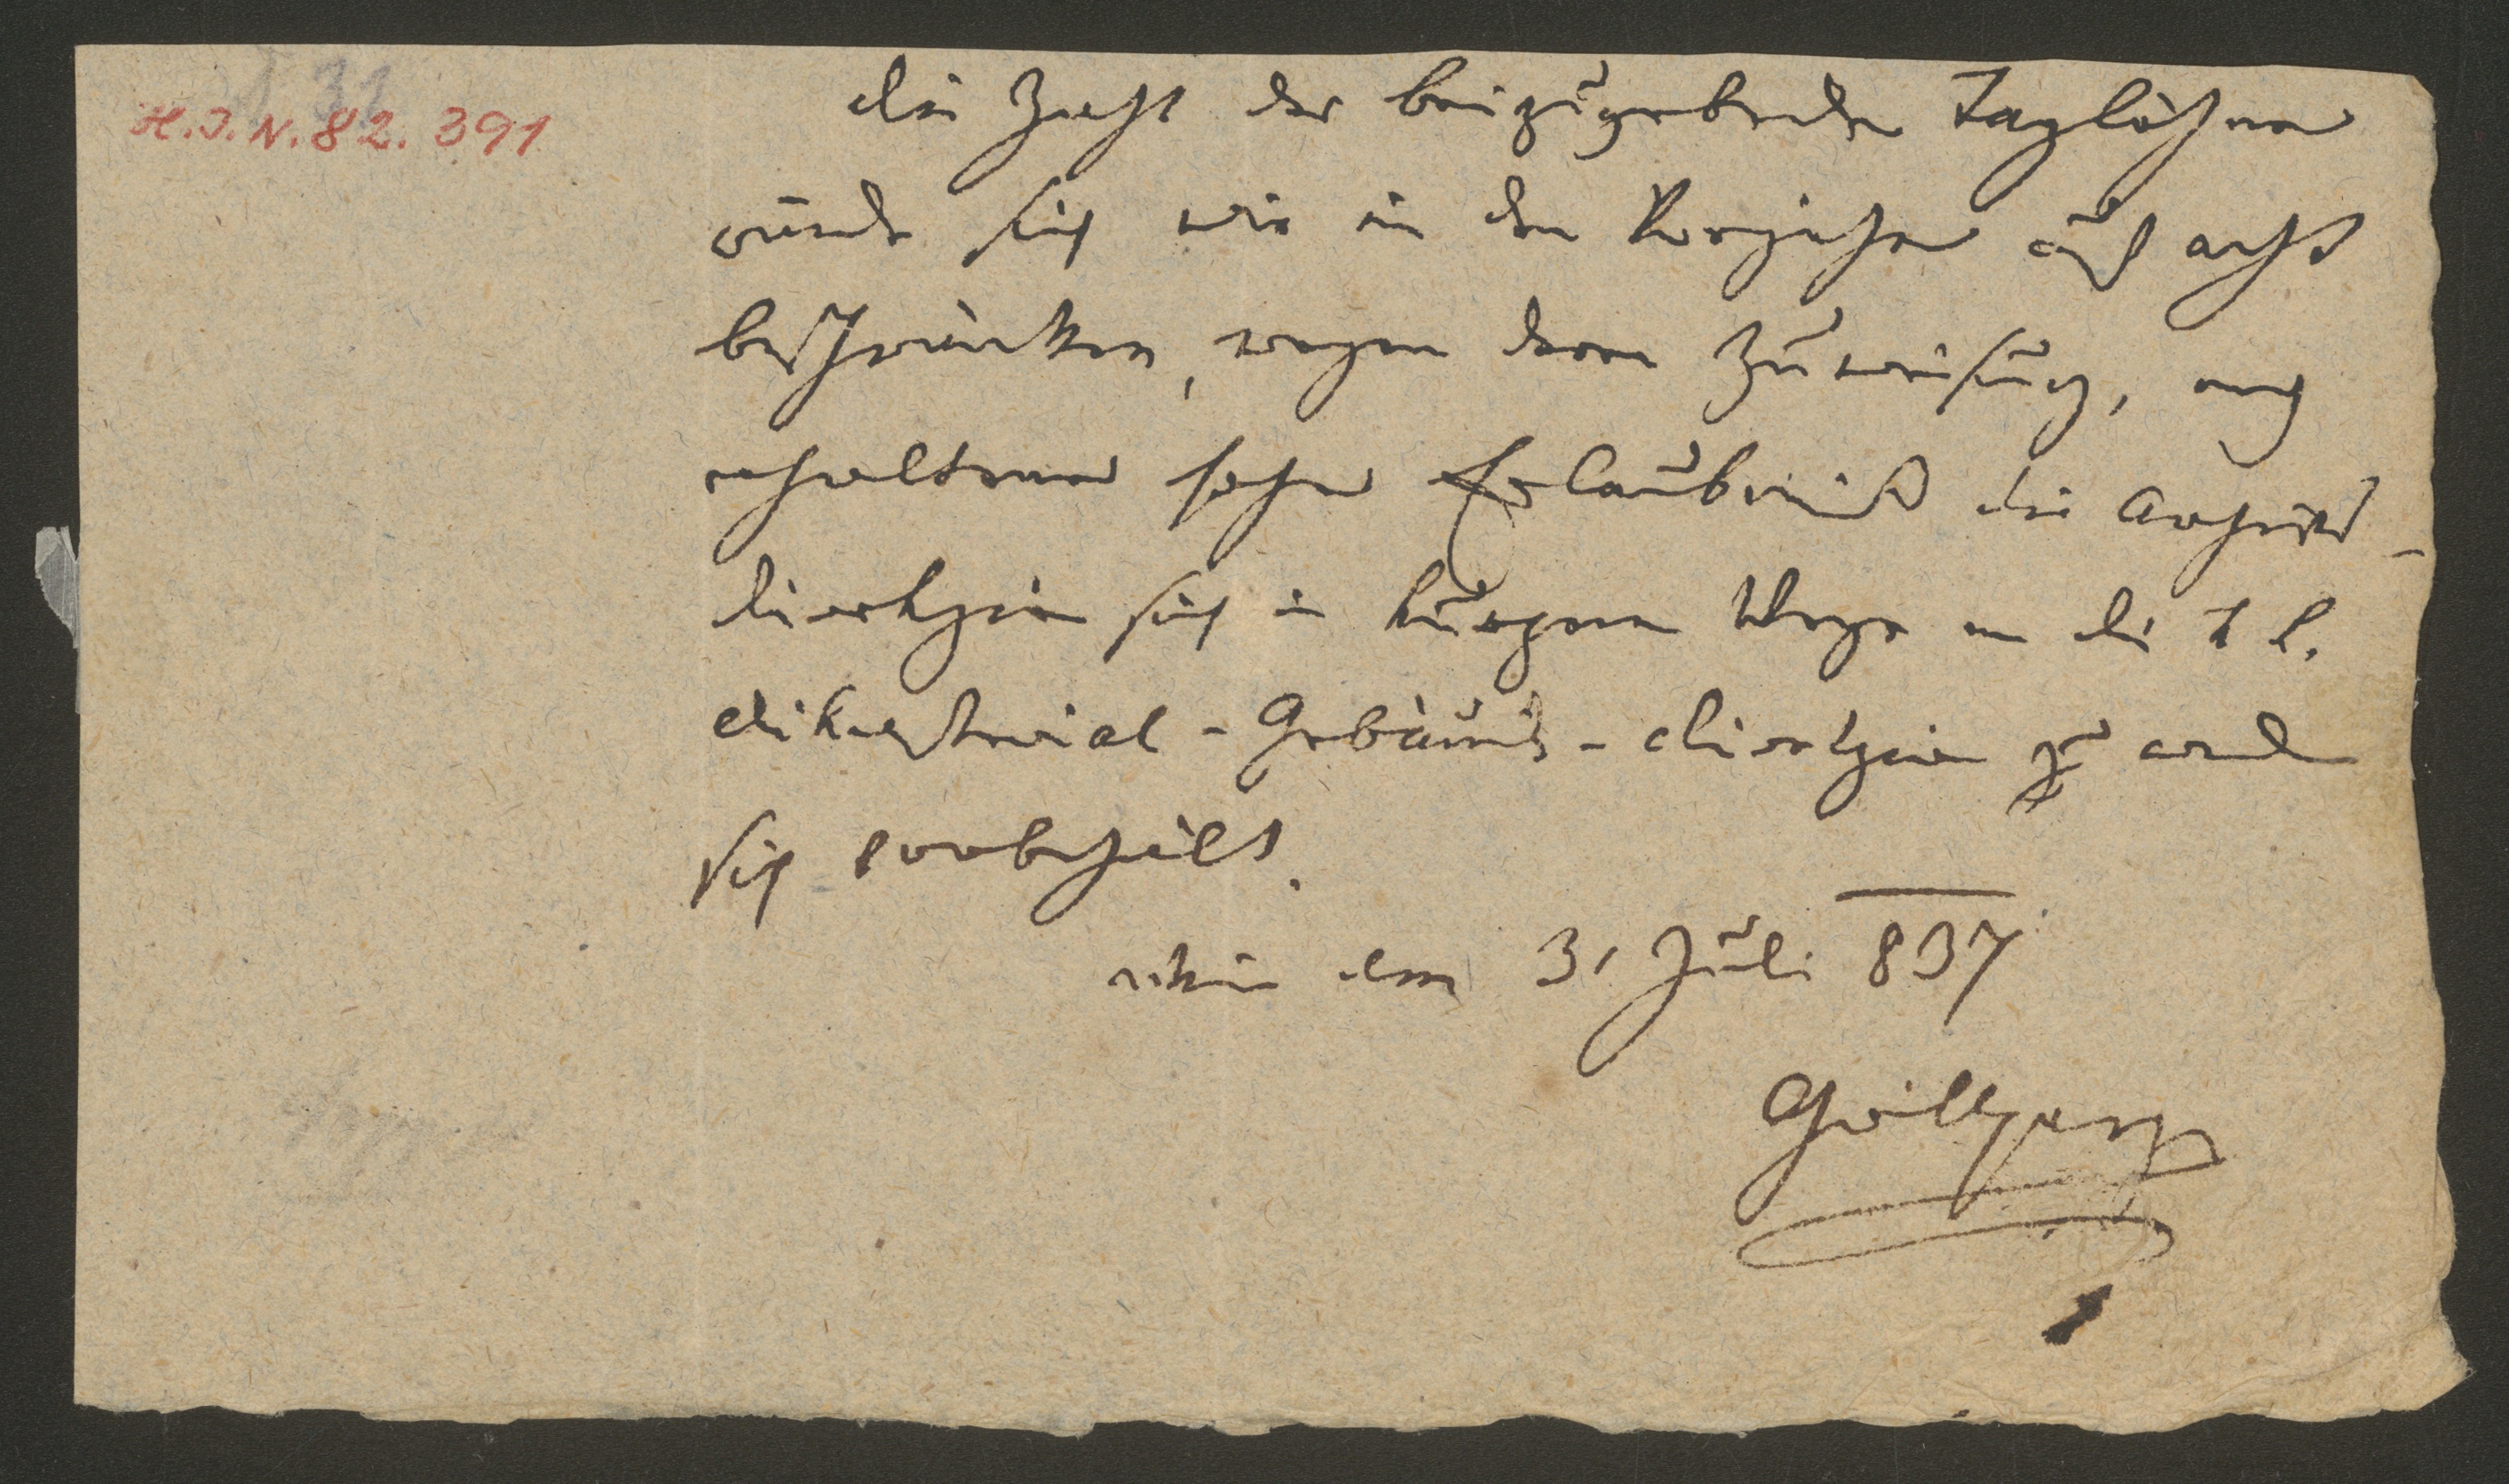 31
H.I.N. 82.391
Die Zahl der beizugebenden Taglöhner
würde sich wie in den Vorjahren auf acht
beschränken, wegen deren Zuweisung, nach
erhaltener hoher Erlaubniß die Archivs-
direkzion sich in kurzem Wege an die k k.
Dikasterial-Gebäude-Direkzion zu wenden
sich vorbehält.
Wien am 31 Juli 837
Grillparzer